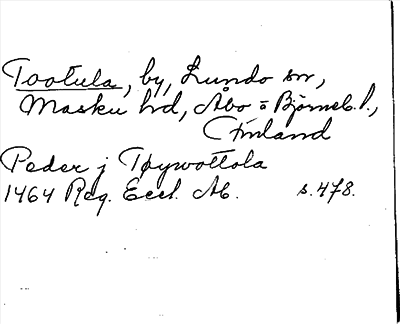 Tootula, by, Lundo sn,
Masku hd, Åbo o Björneb. l.,
Finland
Peder j Tøywottola
1464 Reg. Eccl. Ab. s. 478.